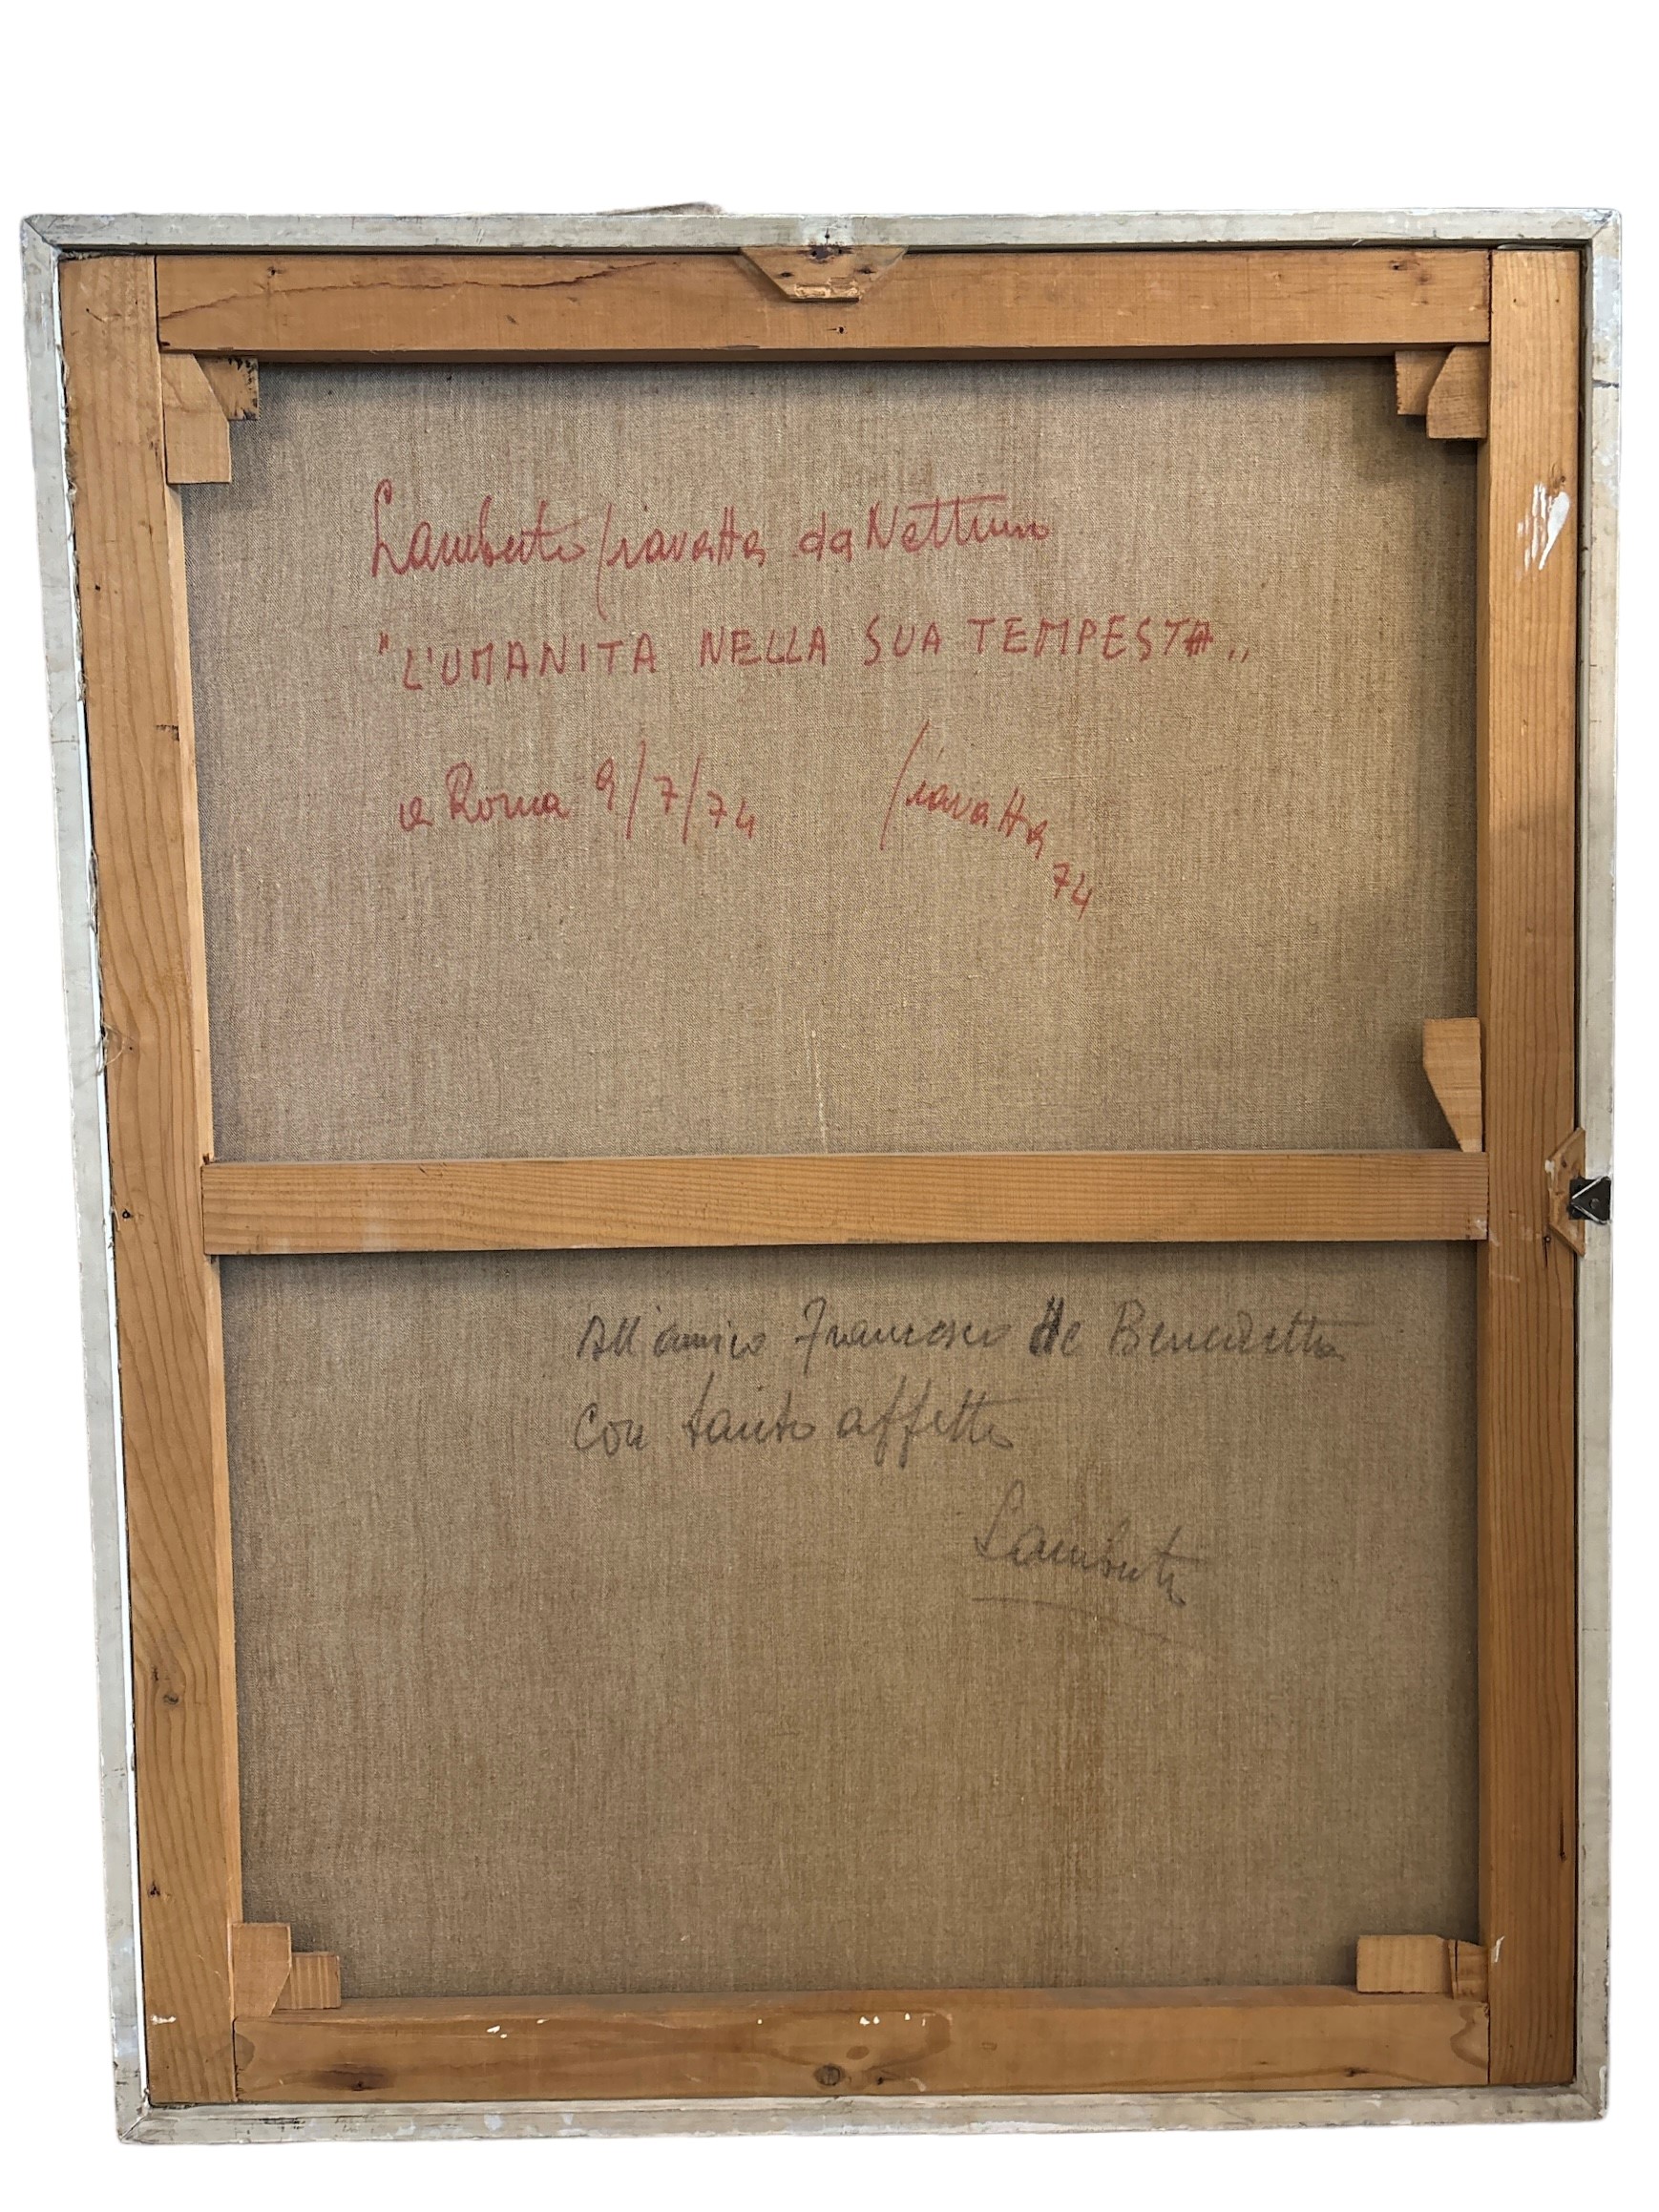 Lamberto Ciavatta da Nettuno
"L'UMANITA NELLA SUA TEMPESTA„
a Roma 9/7/74
Ciavatta
74
All'amico Francesco De Benedetta
con tanto affetto
Lamberto